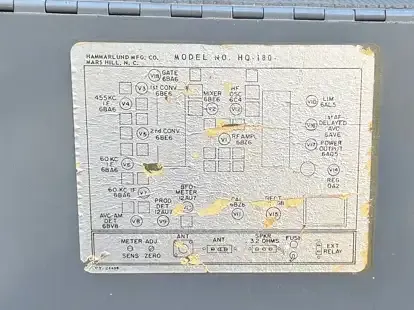 HAMMARLUND MFG. CO.
MARS HILL, N. C.
MODEL NO. HQ-180
GATE
6BA6
V3
1st CONV.
6BE6
455KC
I.F.
6BA6
V4
MIXER
6BE6
V2
HF
OSC
6C4
V10
LIM
6AL5
V5
2nd CONV.
6BE6
1st AF
DELAYED
AVC
6AV6
V1
RF AMPL.
6BZ6
V17
POWER
OUTPUT
6AQ5
60KC
I.F.
6BA6
V6
REG
OA2
60KC IF
6BA6
V7
BFO-
METER
12AU7
PROD
DET.
12AU7
CAL
6BZ6
V11
RECT.
V15
AVC-AM
DET
6BV8
V8
V9
METER ADJ
SENS ZERO
ANT
ANT.
SPKR
3.2 OHMS
FUSE
EXT
RELAY